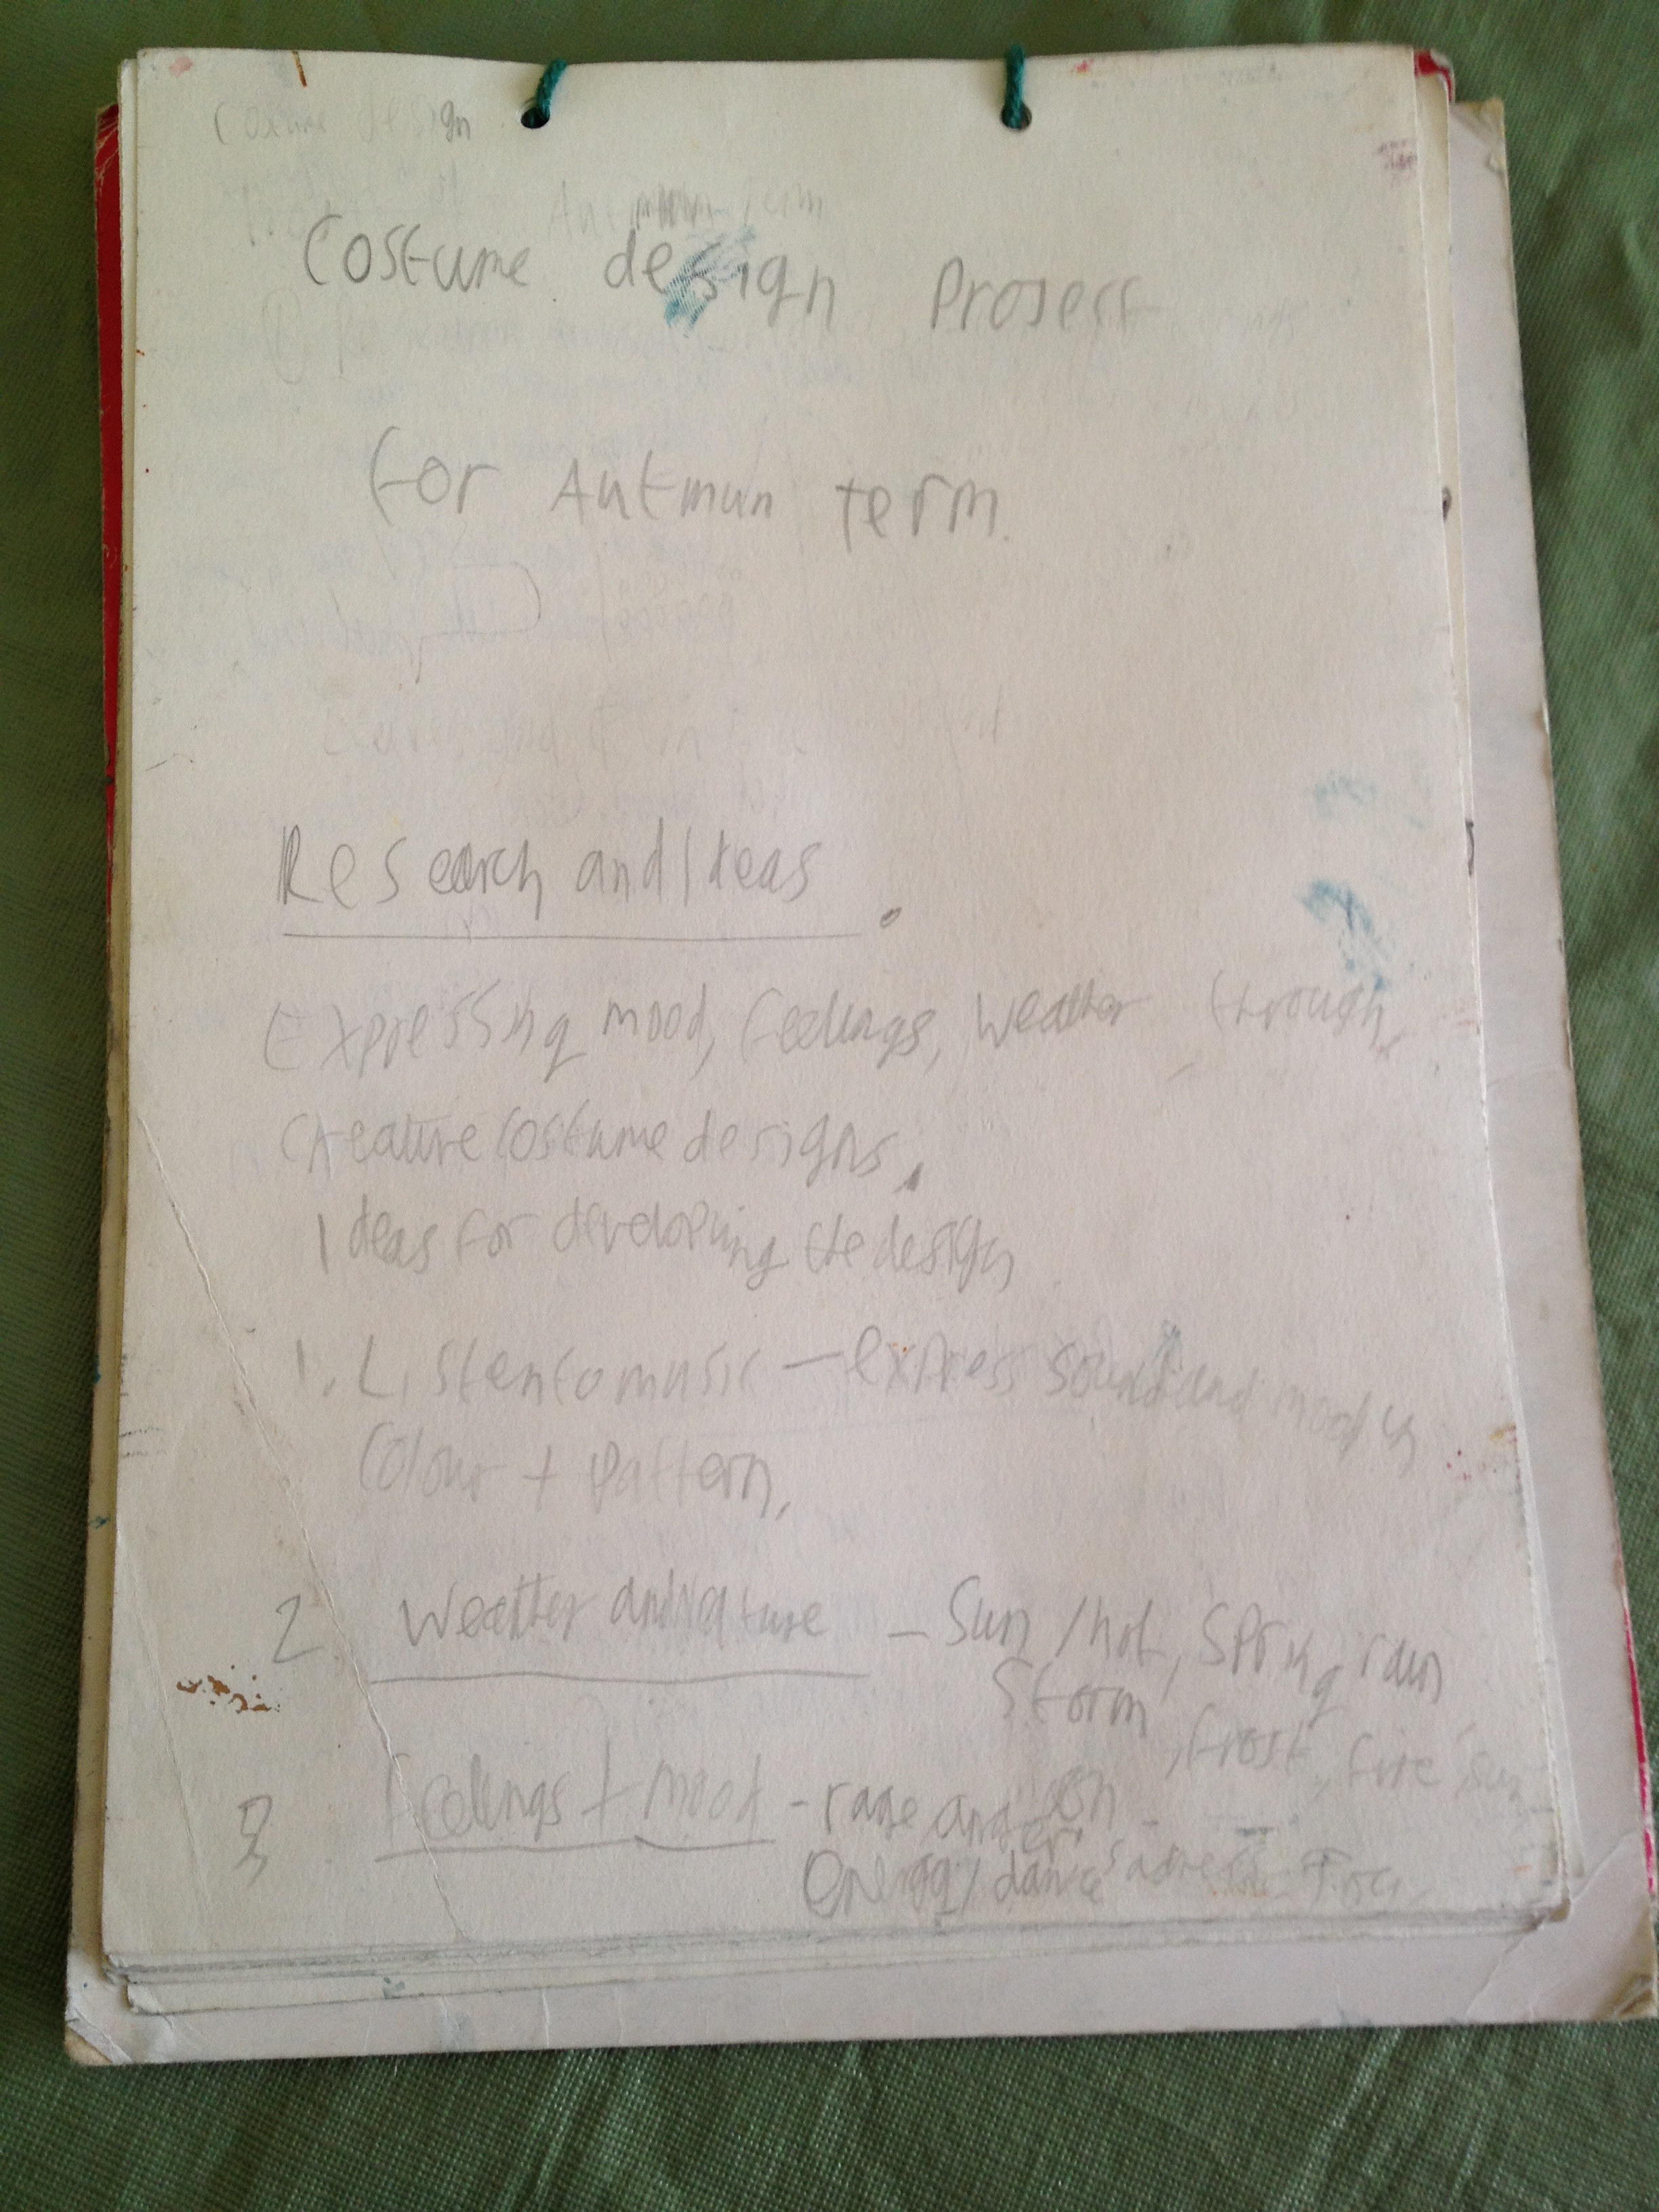 Costume design
Autmun term
Costume design Prosect
for Autmun term.
Research and Ideas.
Expressing mood, feelings, weather through
Creative costume designs.
Ideas for developing the design
1. Listen to music — express sound and mood in
Colour + pattern,
2 Weather and Nature — Sun / hot, Spring rain
Storm, frost, fire, sun
3 Feelings + mood - rage, anger
Energy / dance sadness Joy